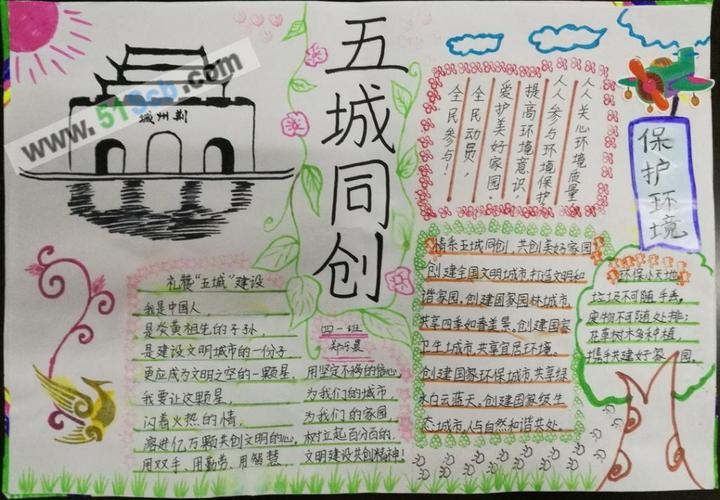 城州荆
五城同创
人人关心环境质量
人人参与环境保护
提高环境意识
爱护美好家园.
全民动员,
全民参与!
保护环境
礼赞"五城"建设
我是中国人,
是炎黄相生的子孙
是建设文明城市的一份子
更应成为文明之空的一颗星,
我要让这颗星,
闪着火热的情,
溶进亿万颗共创文明的心,
用双手、用勤劳、用智慧
四一班
用坚定不移的信心,
为我们的城市,
为我们的家园,
树立起百分百的,
文明建设共创精神!
情系五城同创,共创美好家园
创建全国文明城市,打造文明和
谐家园。创建国家园林城市,
共享四季如春美景。创建国家
卫生城市,共享宜居环境。
创建国家环保城市,共享绿
水白云蓝天。创建国家级生
态城市,人与自然和谐共处。
环保小天地
垃圾不可随手丢,
废物不可随处排;
花草树木多种植,
携手共建好家园。